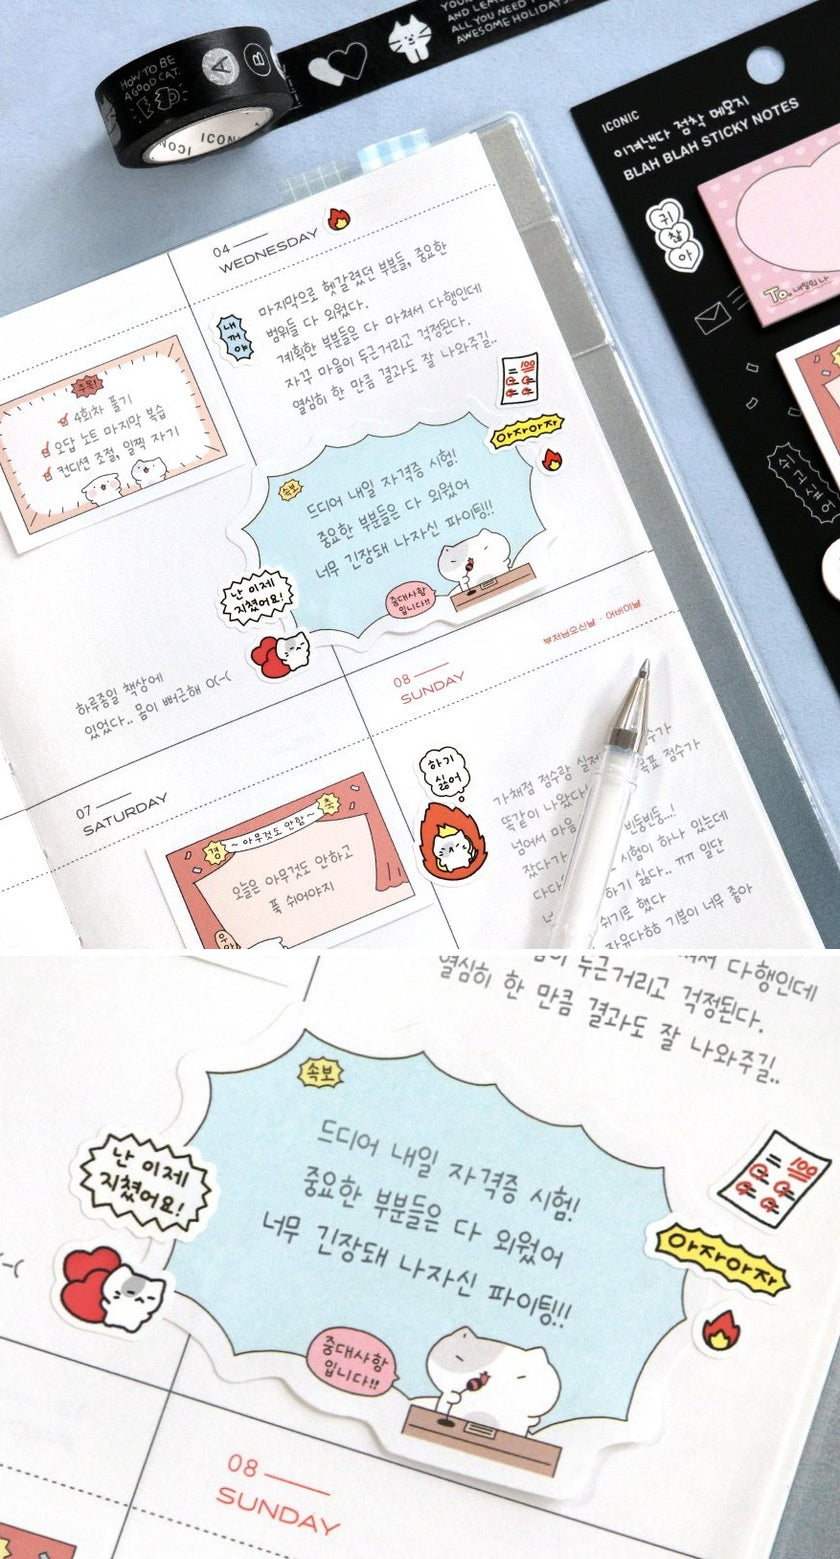 HOW TO BE
A GOOD CAT.
A
B
ICONIC
AND LEMO
ALL YOU NEED
AWESOME HOLIDAYS
ICONIC
이겨낸다 점착 메모지
BLAH BLAH STICKY NOTES
귀
찮
아
To. 내일의 나
04
WEDNESDAY
내
꺼
야
마지막으로 헷갈렸던 부분들, 중요한
범위들 다 외웠다.
계획한 부분들은 다 마쳐서 다행인데
자꾸 마음이 두근거리고 걱정된다.
열심히 한 만큼 결과도 잘 나와주길..
주목!
4회차 풀기
오답 노트 마지막 복습
컨디션 조절, 일찍 자기
100
아자아자
속보
드디어 내일 자격증 시험!
중요한 부분들은 다 외웠어
너무 긴장돼 나자신 파이팅!!
난 이제
지쳤어요!
중대사항
입니다!!
하루종일 책상에
있었다.. 몸이 뻐근해 O(-(
08
SUNDAY
부처님오신날 · 어버이날
07
SATURDAY
경
~ 아무것도 안함 ~
축
오늘은 아무것도 안하고
푹 쉬어야지
하기
싫어
가채점 점수랑 실제 점수가
똑같이 나왔다 목표 점수가
넘어서 마음 빈둥빈둥..!
잤다가 시험이 하나 있는데
하기 싫다.. ㅠㅠ 일단
쉬기로 했다
자유다ㅎㅎ 기분이 너무 좋아
두근거리고 걱정된다.
다행인데
열심히 한 만큼 결과도 잘 나와주길..
속보
드디어 내일 자격증 시험!
중요한 부분들은 다 외웠어
너무 긴장돼 나자신 파이팅!!
난 이제
지쳤어요!
100
아자아자
중대사항
입니다!!
08
SUNDAY